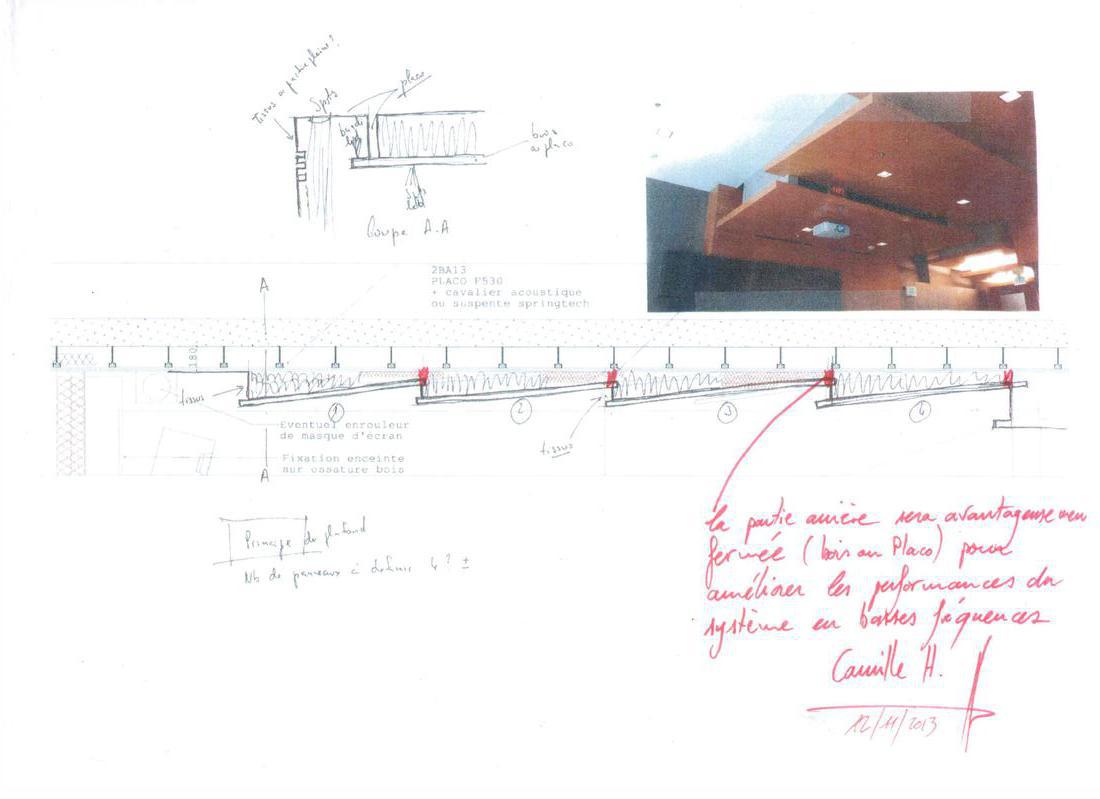 tissus ou partie pleine?
Spots
placo
bois
ou placo
Coupe A.A
2BA13
PLACO F530
+ cavalier acoustique
ou suspente springtech
A
180
tissus
1
2
3
4
Eventuel enrouleur
de masque d'écran
tissus
Fixation enceinte
sur ossature bois
A
Principe du plafond
Nb de panneaux à définir 4? ±
la partie arrière sera avantageusemen
fermée (bois ou Placo) pour
améliorer les performances du
système en basses fréquences
Camille H.
12/11/2013